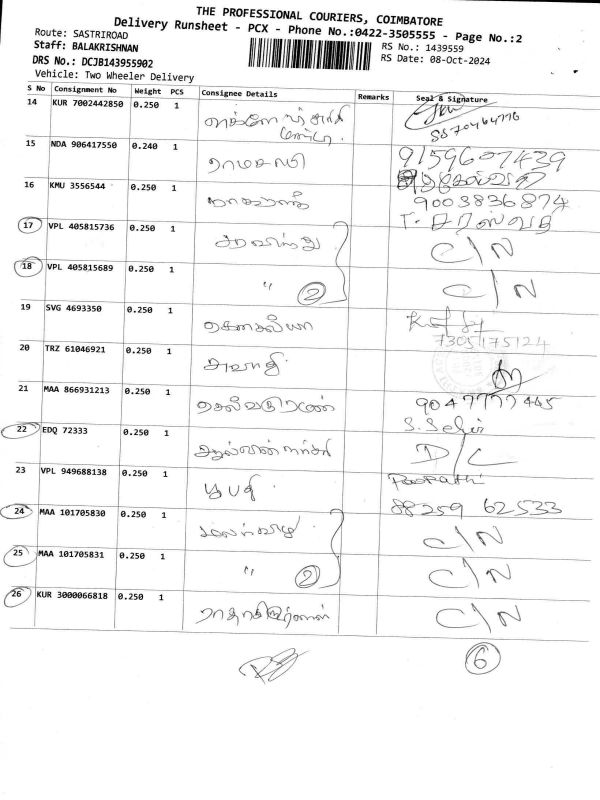 THE PROFESSIONAL COURIERS, COIMBATORE
Delivery Runsheet - PCX - Phone No.:0422-3505555 - Page No.:2
Route: SASTRIROAD
RS No.: 1439559
Staff: BALAKRISHNAN
RS Date: 08-Oct-2024
DRS No.: DCJB143955902
Vehicle: Two Wheeler Delivery
S No Consignment No Weight PCS Consignee Details Remarks Seal & Signature
14 KUR 7002442850 0.250 1
15 NDA 906417550 0.240 1 ராமசாமி 9159607429
16 KMU 3556544 0.250 1 9003836874
T. சரஸ்வதி
17 VPL 405815736 0.250 1 அரவிந்து C/N
18 VPL 405815689 0.250 1 " 2 C/N
19 SVG 4693350 0.250 1 கௌசல்யா 7305175124
20 TRZ 61046921 0.250 1
21 MAA 866931213 0.250 1 9047777445
22 EDQ 72333 0.250 1 D/C
23 VPL 949688138 0.250 1 பூபதி 88259 62533
24 MAA 101705830 0.250 1 C/N
25 MAA 101705831 0.250 1 " 2 C/N
26 KUR 3000066818 0.250 1 ராதாகிருஷ்ணன் C/N
6